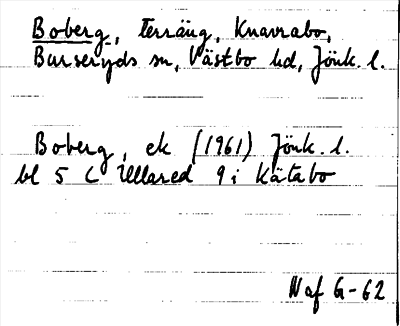 Boberg, Terräng, Knavrabo,
Burseryds sn, Västbo hd, Jönk. l.
Boberg, ek (1961) Jönk. l.
bl 5 C Ullared 9 i Kätabo
Naf G-62